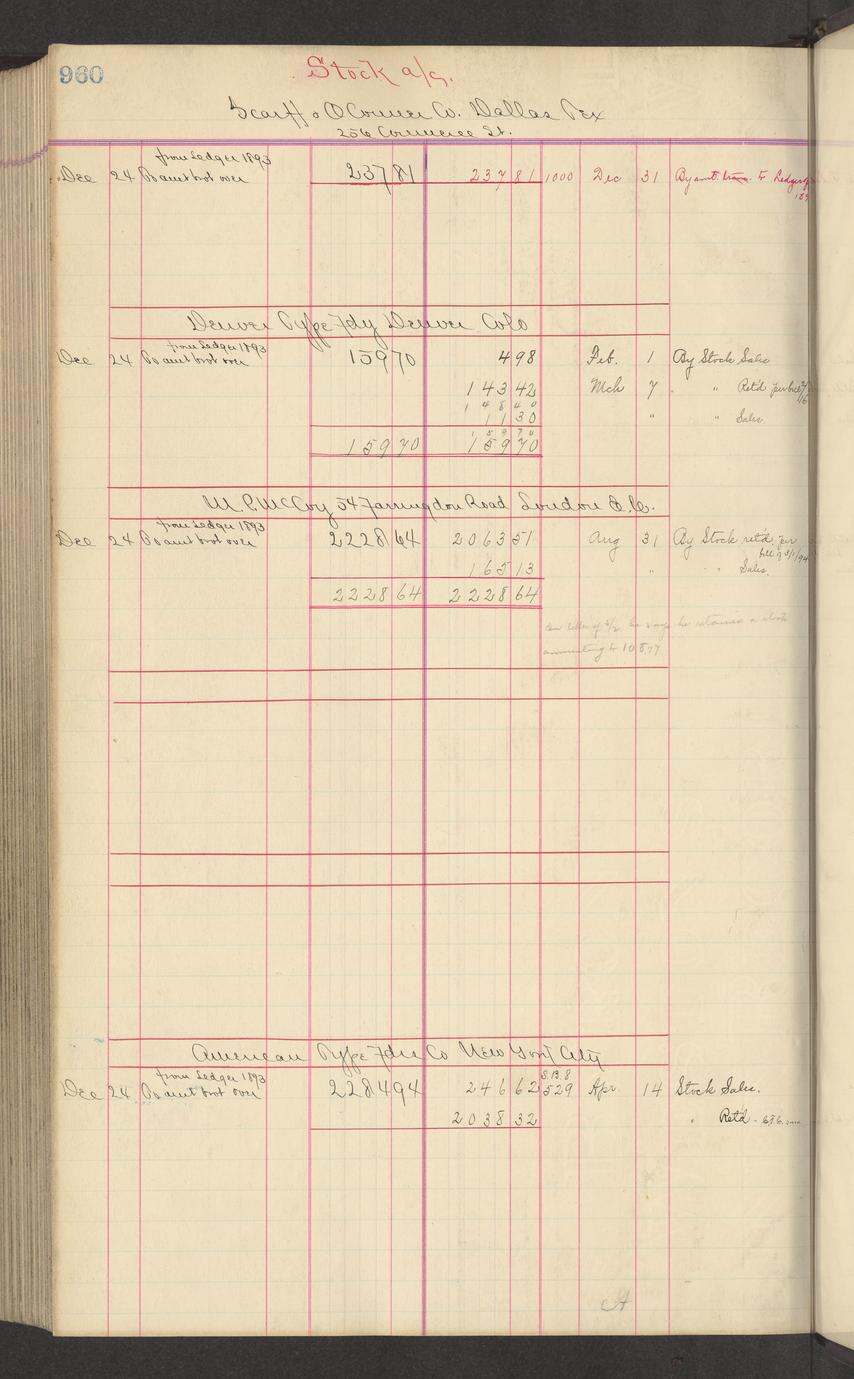 960
Stock a/c.
Scarff & O'Connor Co. Dallas Tex
256 Commerce St.
from Ledger 1893
Dec 24 To amt brot over 237 81 237 81 1000 Dec 31 By amt. trans. to Ledger
Denver Type Fdy Denver Colo
from Ledger 1893
Dec 24 To amt brot over 159 70 4 98 Feb. 1 By Stock Sales
143 42 Mch 7 " " Ret'd per bill
148 40
11 30 " " Sales
159 70
159 70 159 70
M. P. McCoy 54 Farringdon Road London E.C.
from Ledger 1893
Dec 24 To amt brot over 2228 64 2063 51 Aug 31 By Stock ret'd per
bill of 3/1/94
165 13 " " Sales.
2228 64 2228 64
he says he retained a stock
amounting to 108.77
American Type Fdrs Co New York City
from Ledger 1893
S.B. 8
Dec 24 To amt brot over 2284 94 246 62 529 Apr 14 Stock Sales.
2038 32 " Ret'd